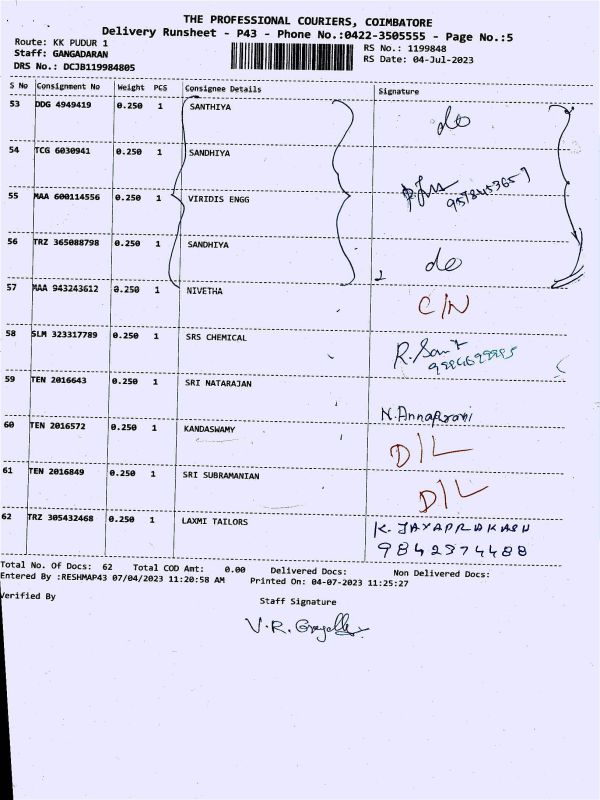 THE PROFESSIONAL COURIERS, COIMBATORE
Delivery Runsheet - P43 - Phone No.:0422-3505555 - Page No.:5
Route: KK PUDUR 1
RS No.: 1199848
Staff: GANGADARAN
RS Date: 04-Jul-2023
DRS No.: DCJB119984805
S No Consignment No Weight PCS Consignee Details Signature
53 DDG 4949419 0.250 1 SANTHIYA do
54 TCG 6030941 0.250 1 SANDHIYA
55 MAA 600114556 0.250 1 VIRIDIS ENGG
56 TRZ 365088798 0.250 1 SANDHIYA do
57 MAA 943243612 0.250 1 NIVETHA C/N
58 SLM 323317789 0.250 1 SRS CHEMICAL
59 TEN 2016643 0.250 1 SRI NATARAJAN
60 TEN 2016572 0.250 1 KANDASWAMY D/L
61 TEN 2016849 0.250 1 SRI SUBRAMANIAN D/L
62 TRZ 305432468 0.250 1 LAXMI TAILORS K. JAYAPRAKASH
9842374488
Total No. Of Docs: 62 Total COD Amt: 0.00 Delivered Docs: Non Delivered Docs:
Entered By :RESHMAP43 07/04/2023 11:20:58 AM Printed On: 04-07-2023 11:25:27
Verified By
Staff Signature